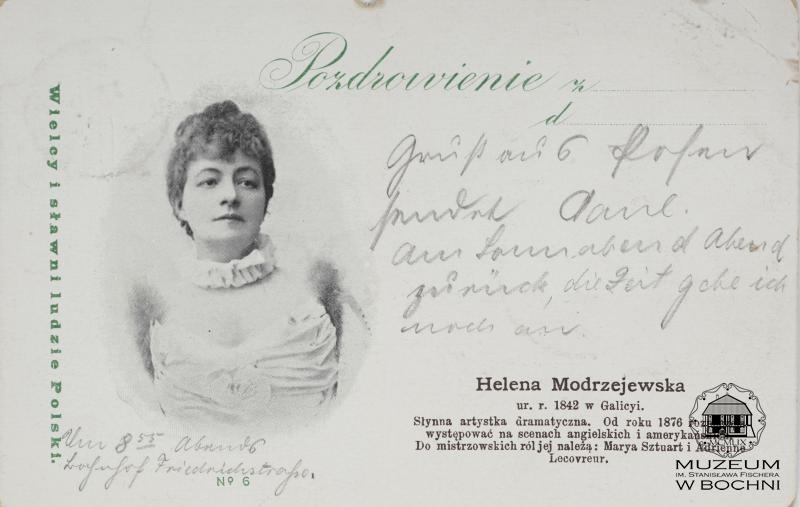 Pozdrowienie z
d
Wielcy i sławni ludzie Polski.
Gruß aus Posen
sendet Paul.
Am Sonnabend Abend
zurück, die Zeit gebe ich
noch an.
Um 8 55 Abends
Bahnhof Friedrichstraße.
Helena Modrzejewska
ur. r. 1842 w Galicyi.
Słynna artystka dramatyczna. Od roku 1876
występować na scenach angielskich i
Do mistrzowskich ról jej należą: Marya Sztuart i Adrienne
Lecovreur.
№ 6
MCMLIX
MUZEUM
IM. STANISŁAWA FISCHERA
W BOCHNI